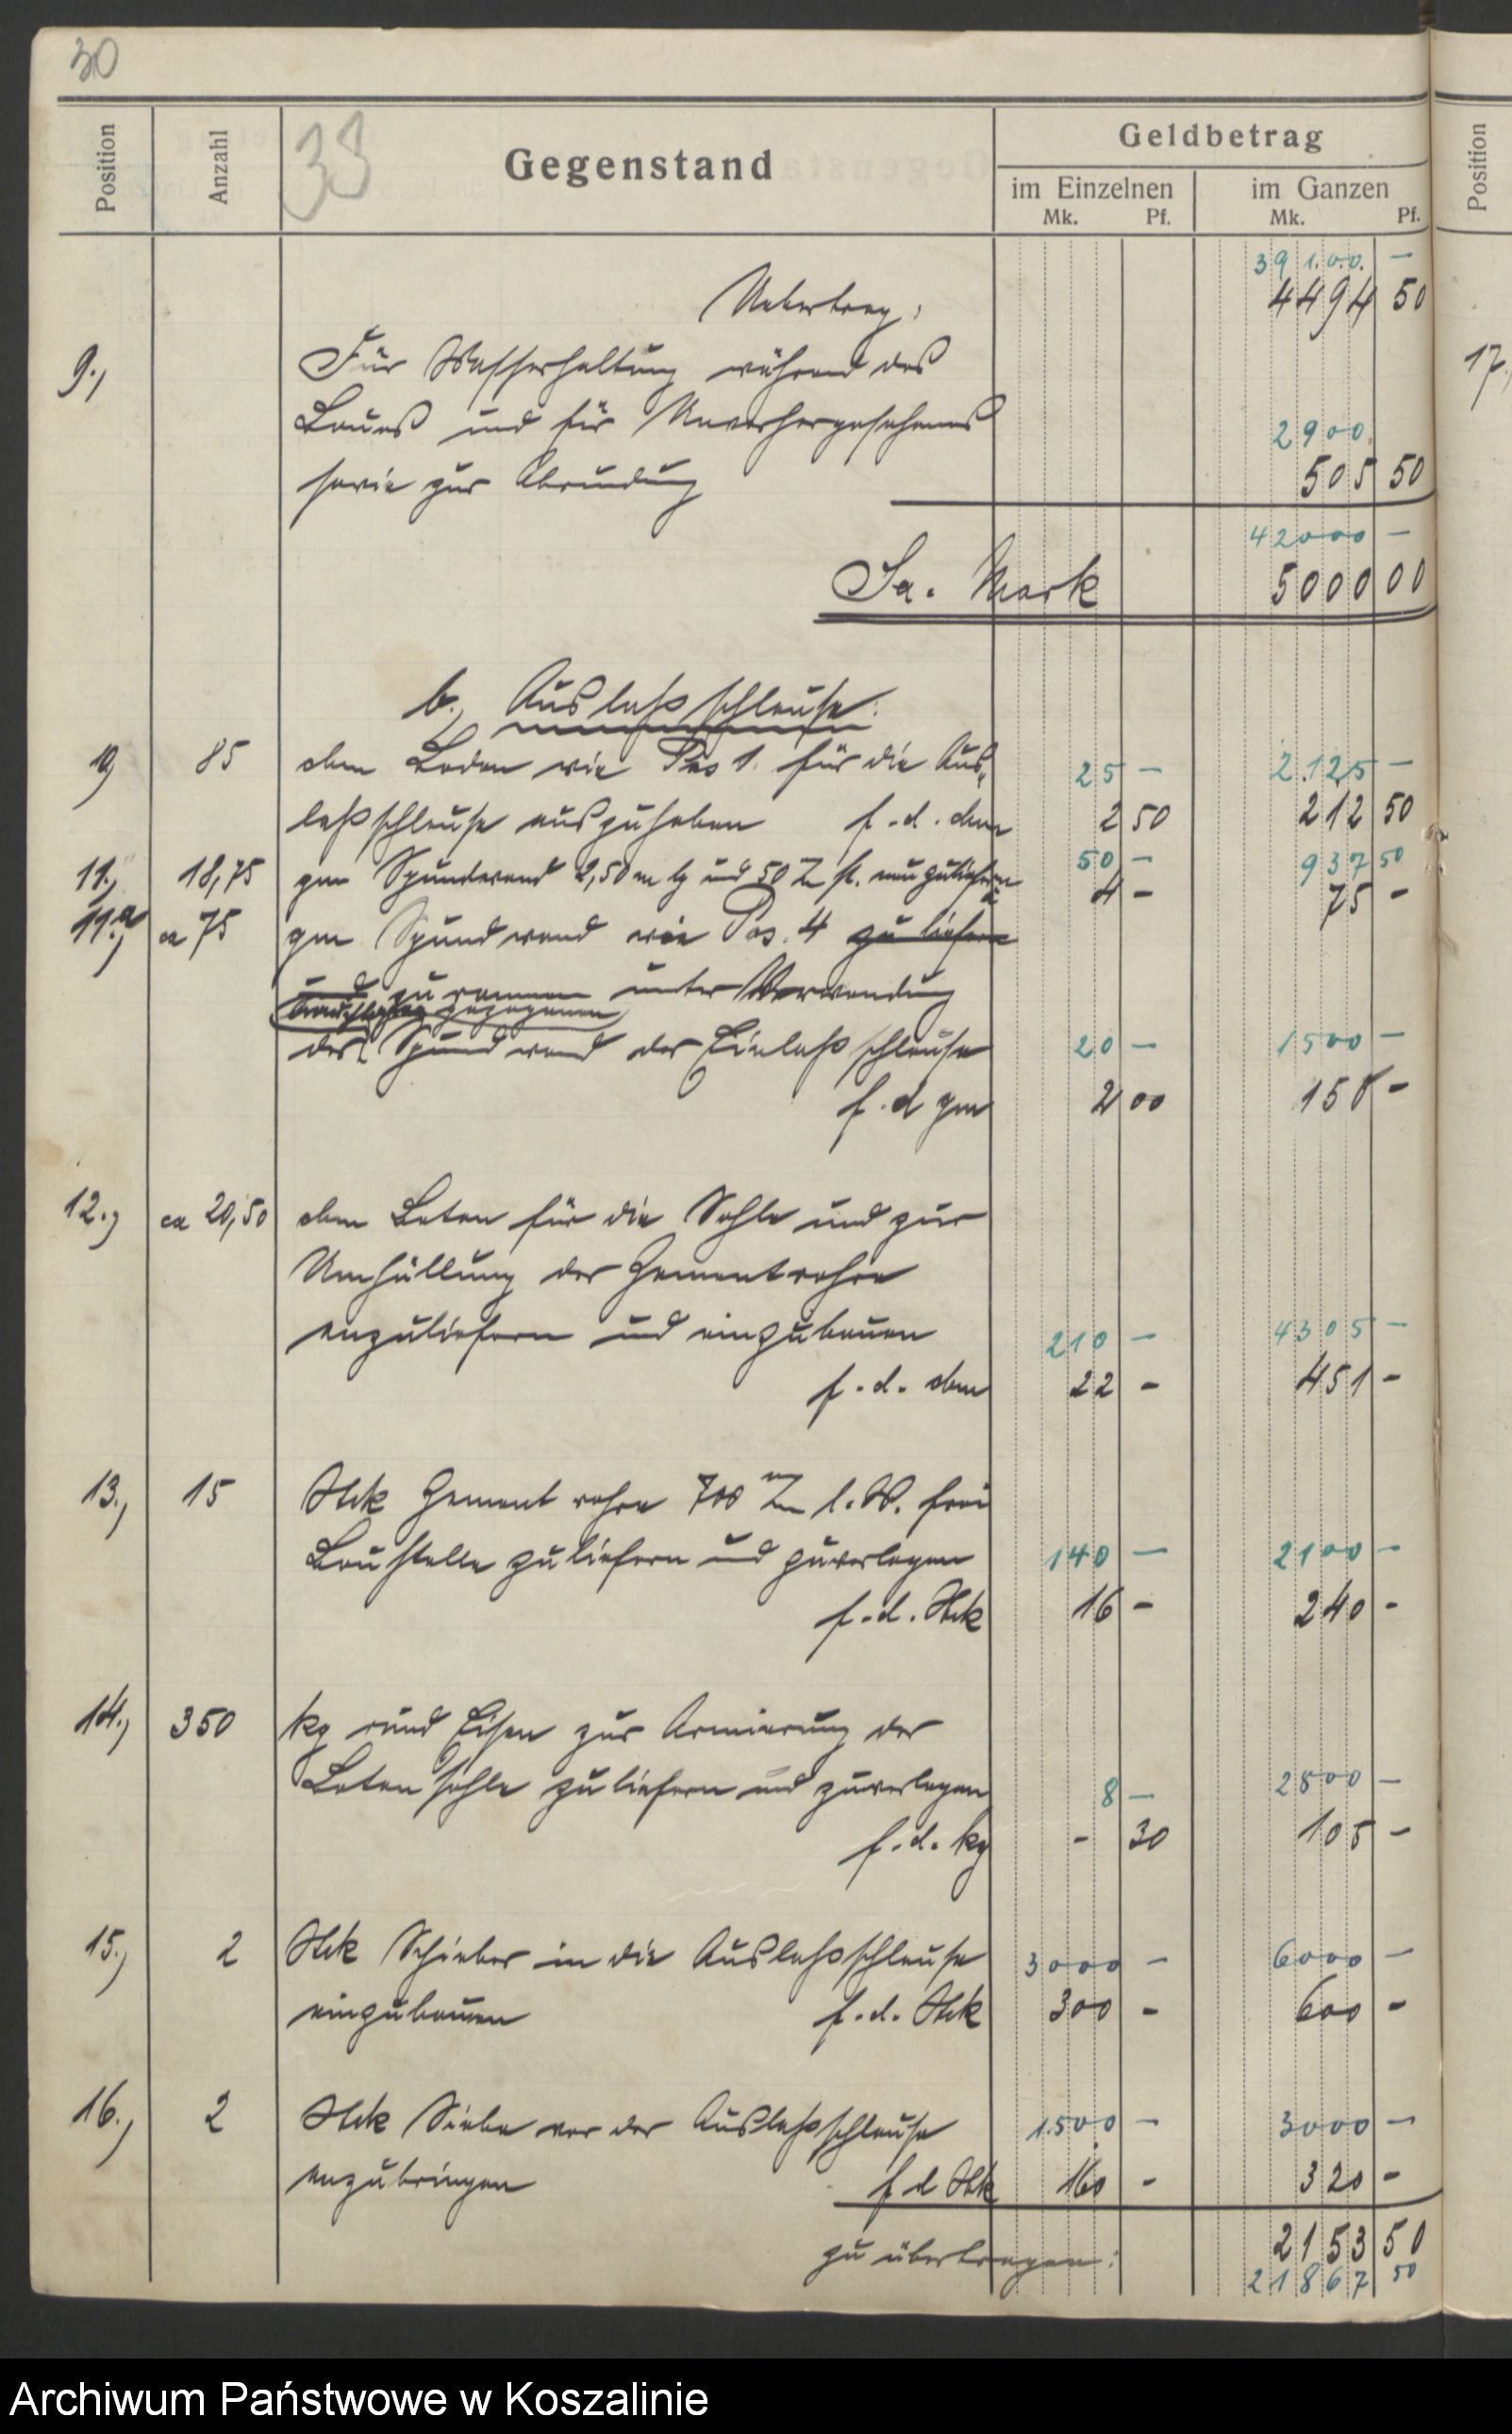 30
Position
Anzahl
33
Gegenstand
Geldbetrag
im Einzelnen
im Ganzen
Mk. Pf.
Mk. Pf.
Position
39 100. —
Uebertrag: 4494 50
9.) Für Wasserhaltung während des
17.
Baues und für Unvorhergesehenes 2900.
sowie zur Abrundung 505 50
42000 —
Sa. Mark 5000 00
b., Auslaßschleuse:
10) 85 cbm Boden wie Pos 1. für die Aus- 25 — 2.125 —
laßschleuse auszuheben f. d. cbm 2 50 212 50
50 — 937 50
11.) 18,75 qm Spundwand 2,50 m lg und 50 st. neu zuliefern 4 — 75 —
11.a) ca 75 qm Spundwand wie Pos. 4 zu liefern
und zu rammen unter Verwendung
gezogenen
der Spundwand der Einlaßschleuse 20 — 1500 —
f. d qm 2 00 150 —
12.) ca 20,50 cbm Beton für die Sohle und zur
Umhüllung der Zementrohre
anzuliefern und einzubauen 210 — 4305 —
f. d. cbm 22 — 451 —
13.) 15 Stck Zementrohre 700 m/m l. W. frei
Baustelle zuliefern und zuverlegen 140 — 2100 —
f. d. Stck 16 — 240 —
14.) 350 kg rund Eisen zur Armierung der
Betonsohle zuliefern und zuverlegen 8 — 2800 —
f. d. kg - 30 105 —
15.) 2 Stck Schieber in die Auslaßschleuse 3000 — 6000 —
einzubauen f. d. Stck 300 — 600 —
16.) 2 Stck Siebe vor der Auslaßschleuse 1.500 — 3000 —
anzubringen f d Stk 160 — 320 —
zu übertragen: 2153 50
21867 50
Archiwum Państwowe w Koszalinie